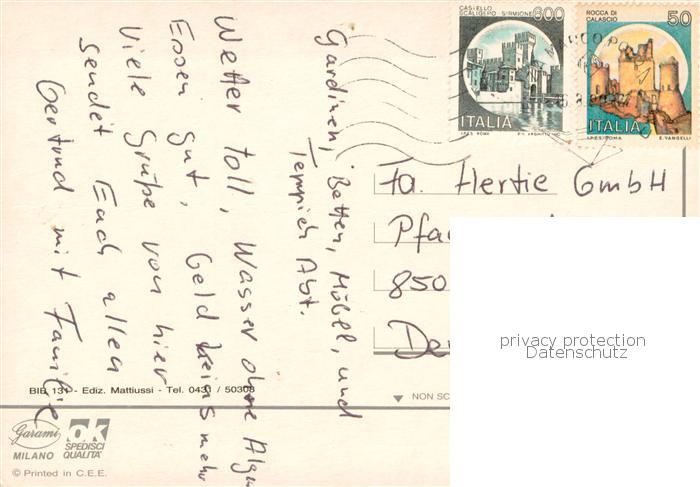 CASTELLO
SCALIGERO SIRMIONE
600
ITALIA
I.P.Z.S. ROMA
ROCCA DI
CALASCIO
50
ITALIA
I.P.Z.S. ROMA E. VANGELLI
Gardinen, Betten, Möbel, und
Teppich Abt.
Wetter toll, Wasser ohne
Essen gut, Geld keins mehr
Viele Grüße von hier
sendet Euch allen
Gertrud mit Familie
Fa. Hertie GmbH
850
privacy protection
Datenschutz
BIB 131 - Ediz. Mattiussi - Tel. 0431 / 50308
NON SC
Garami
MILANO
OK
SPEDISCI
QUALITÀ
© Printed in C.E.E.